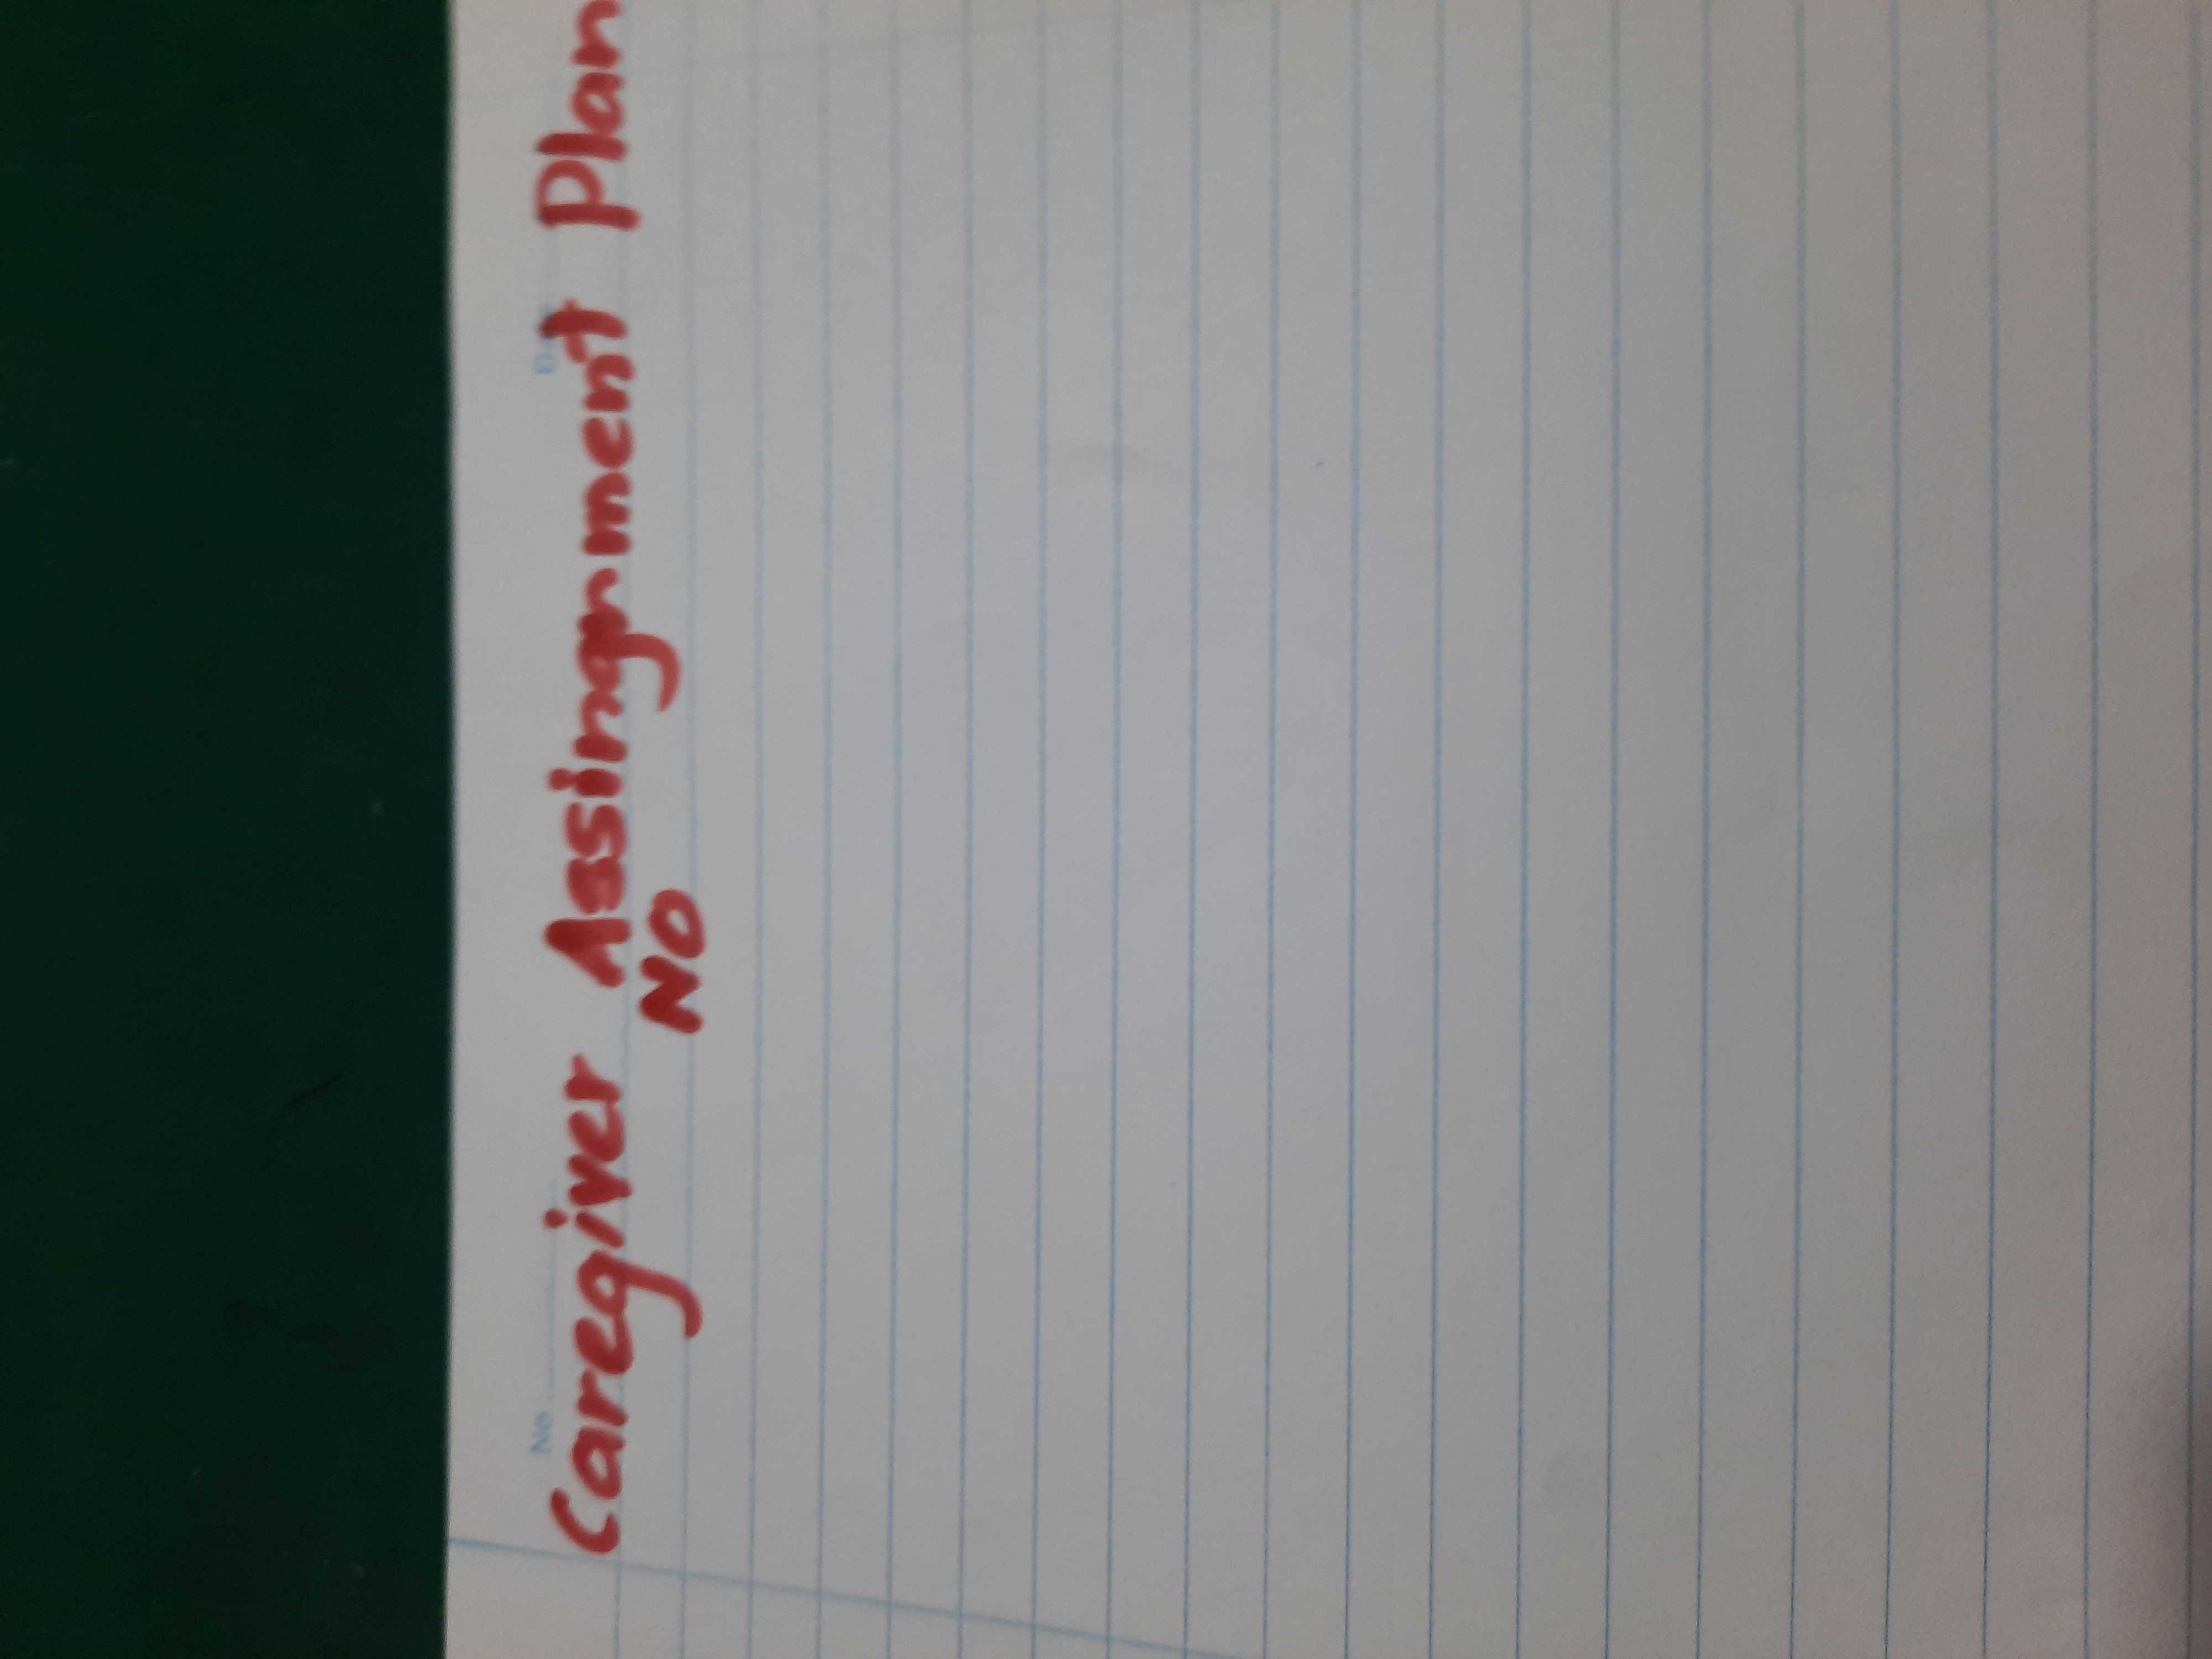 No
Caregiver Assingnment Plan
NO